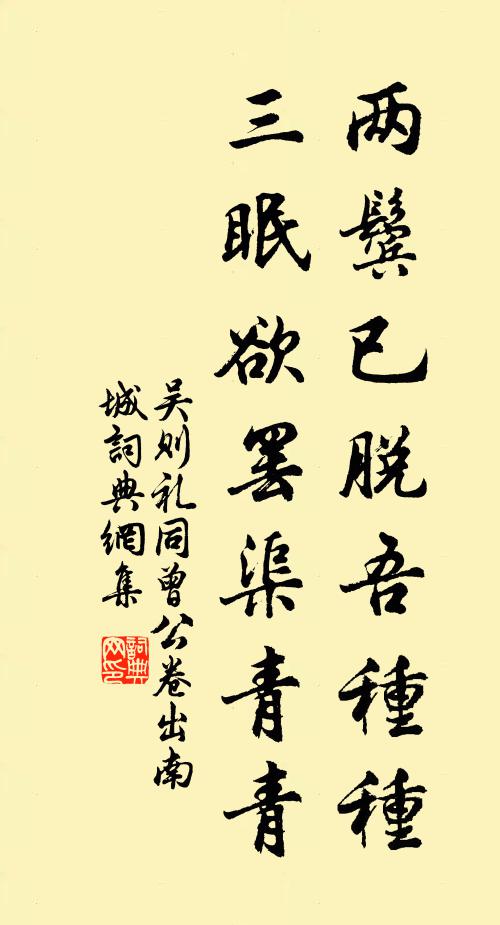 两鬓已脱吾種種
三眠欲罢渠青青
吴则礼同曾公卷出南
城詞典網集
詞典网印